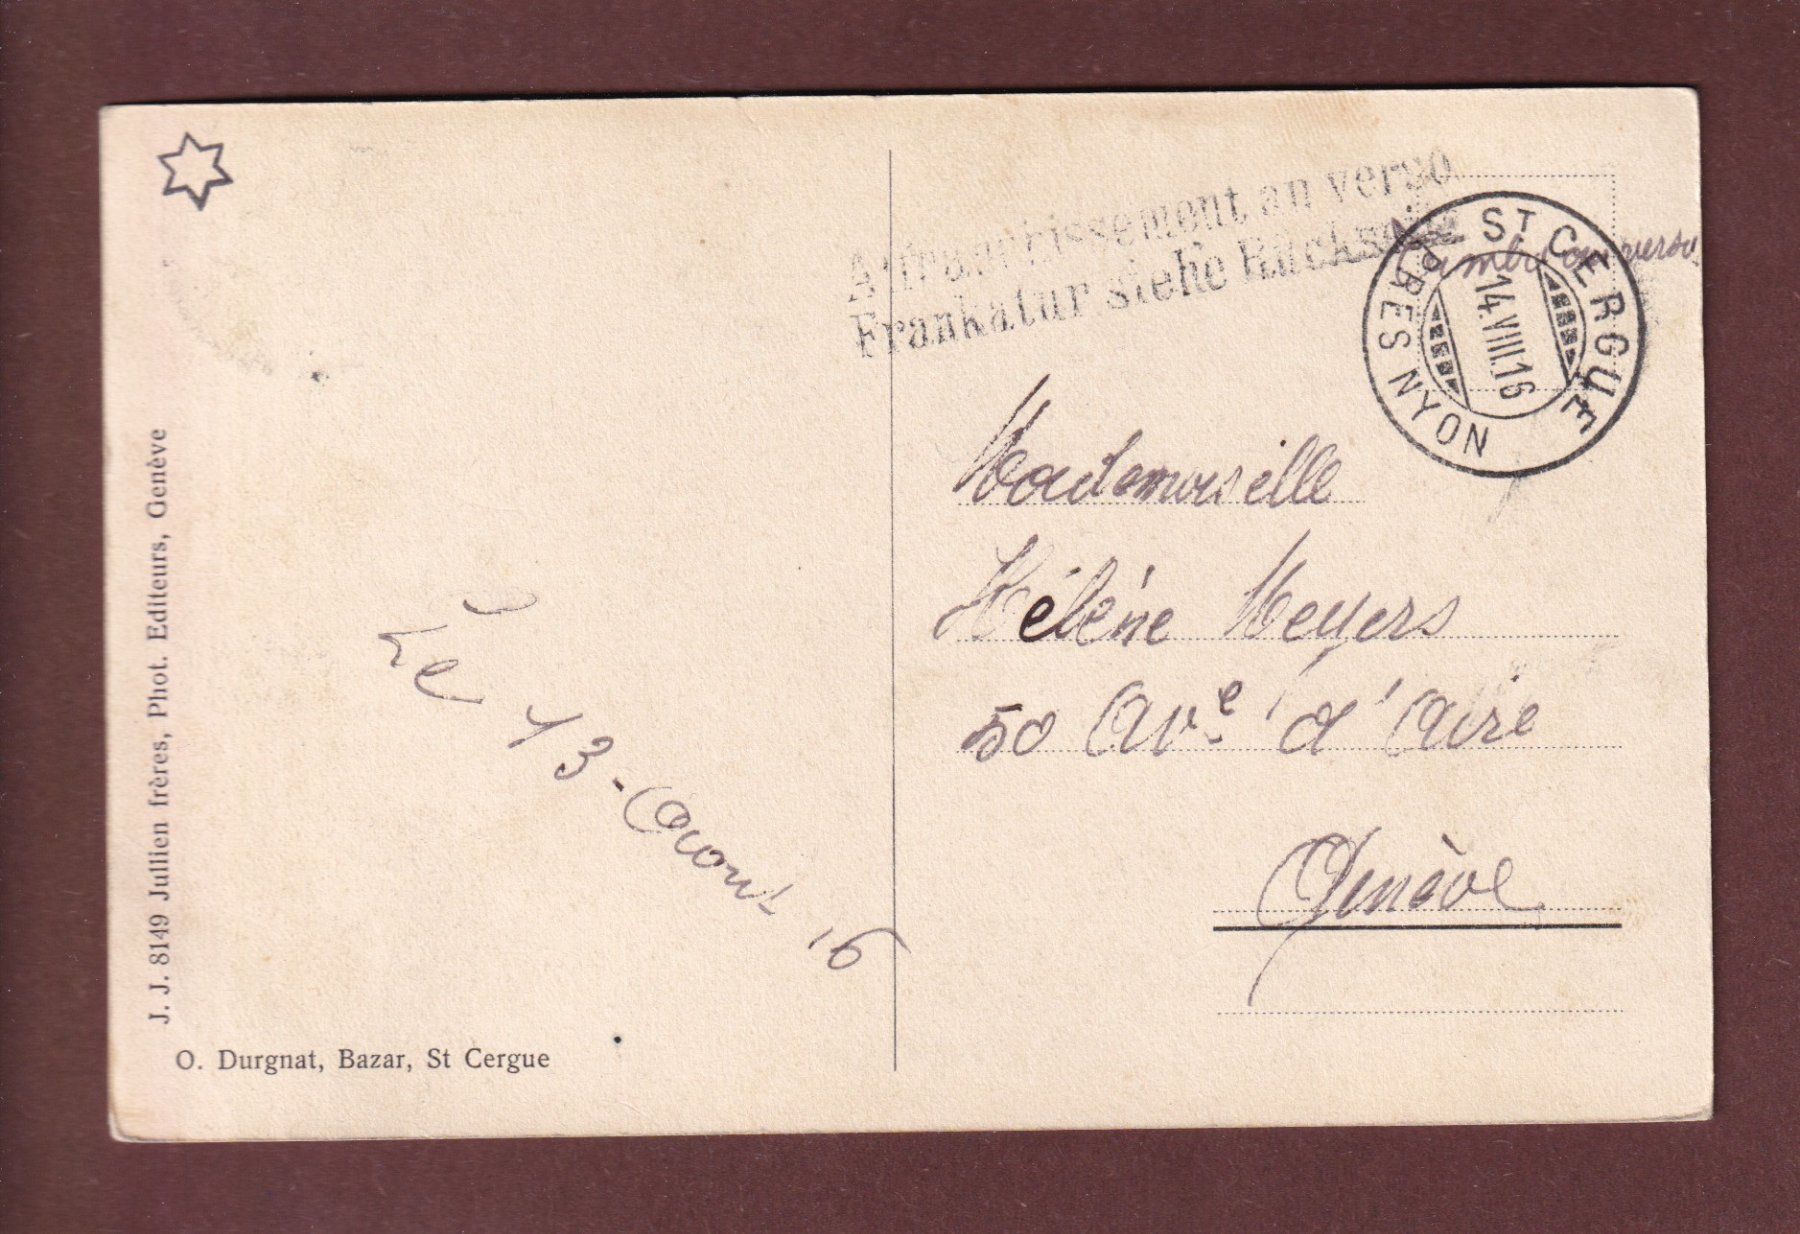 Affranchissement au verso
Frankatur siehe Rückseite
Timbre au verso
ST CERGUE
14.VIII.16
PRÈS NYON
Mademoiselle
Hélène Meyers
50 Ave d'Aïre
Genève
Le 13 - Aout 16
J. J. 8149 Jullien frères, Phot. Editeurs, Genève
O. Durgnat, Bazar, St Cergue